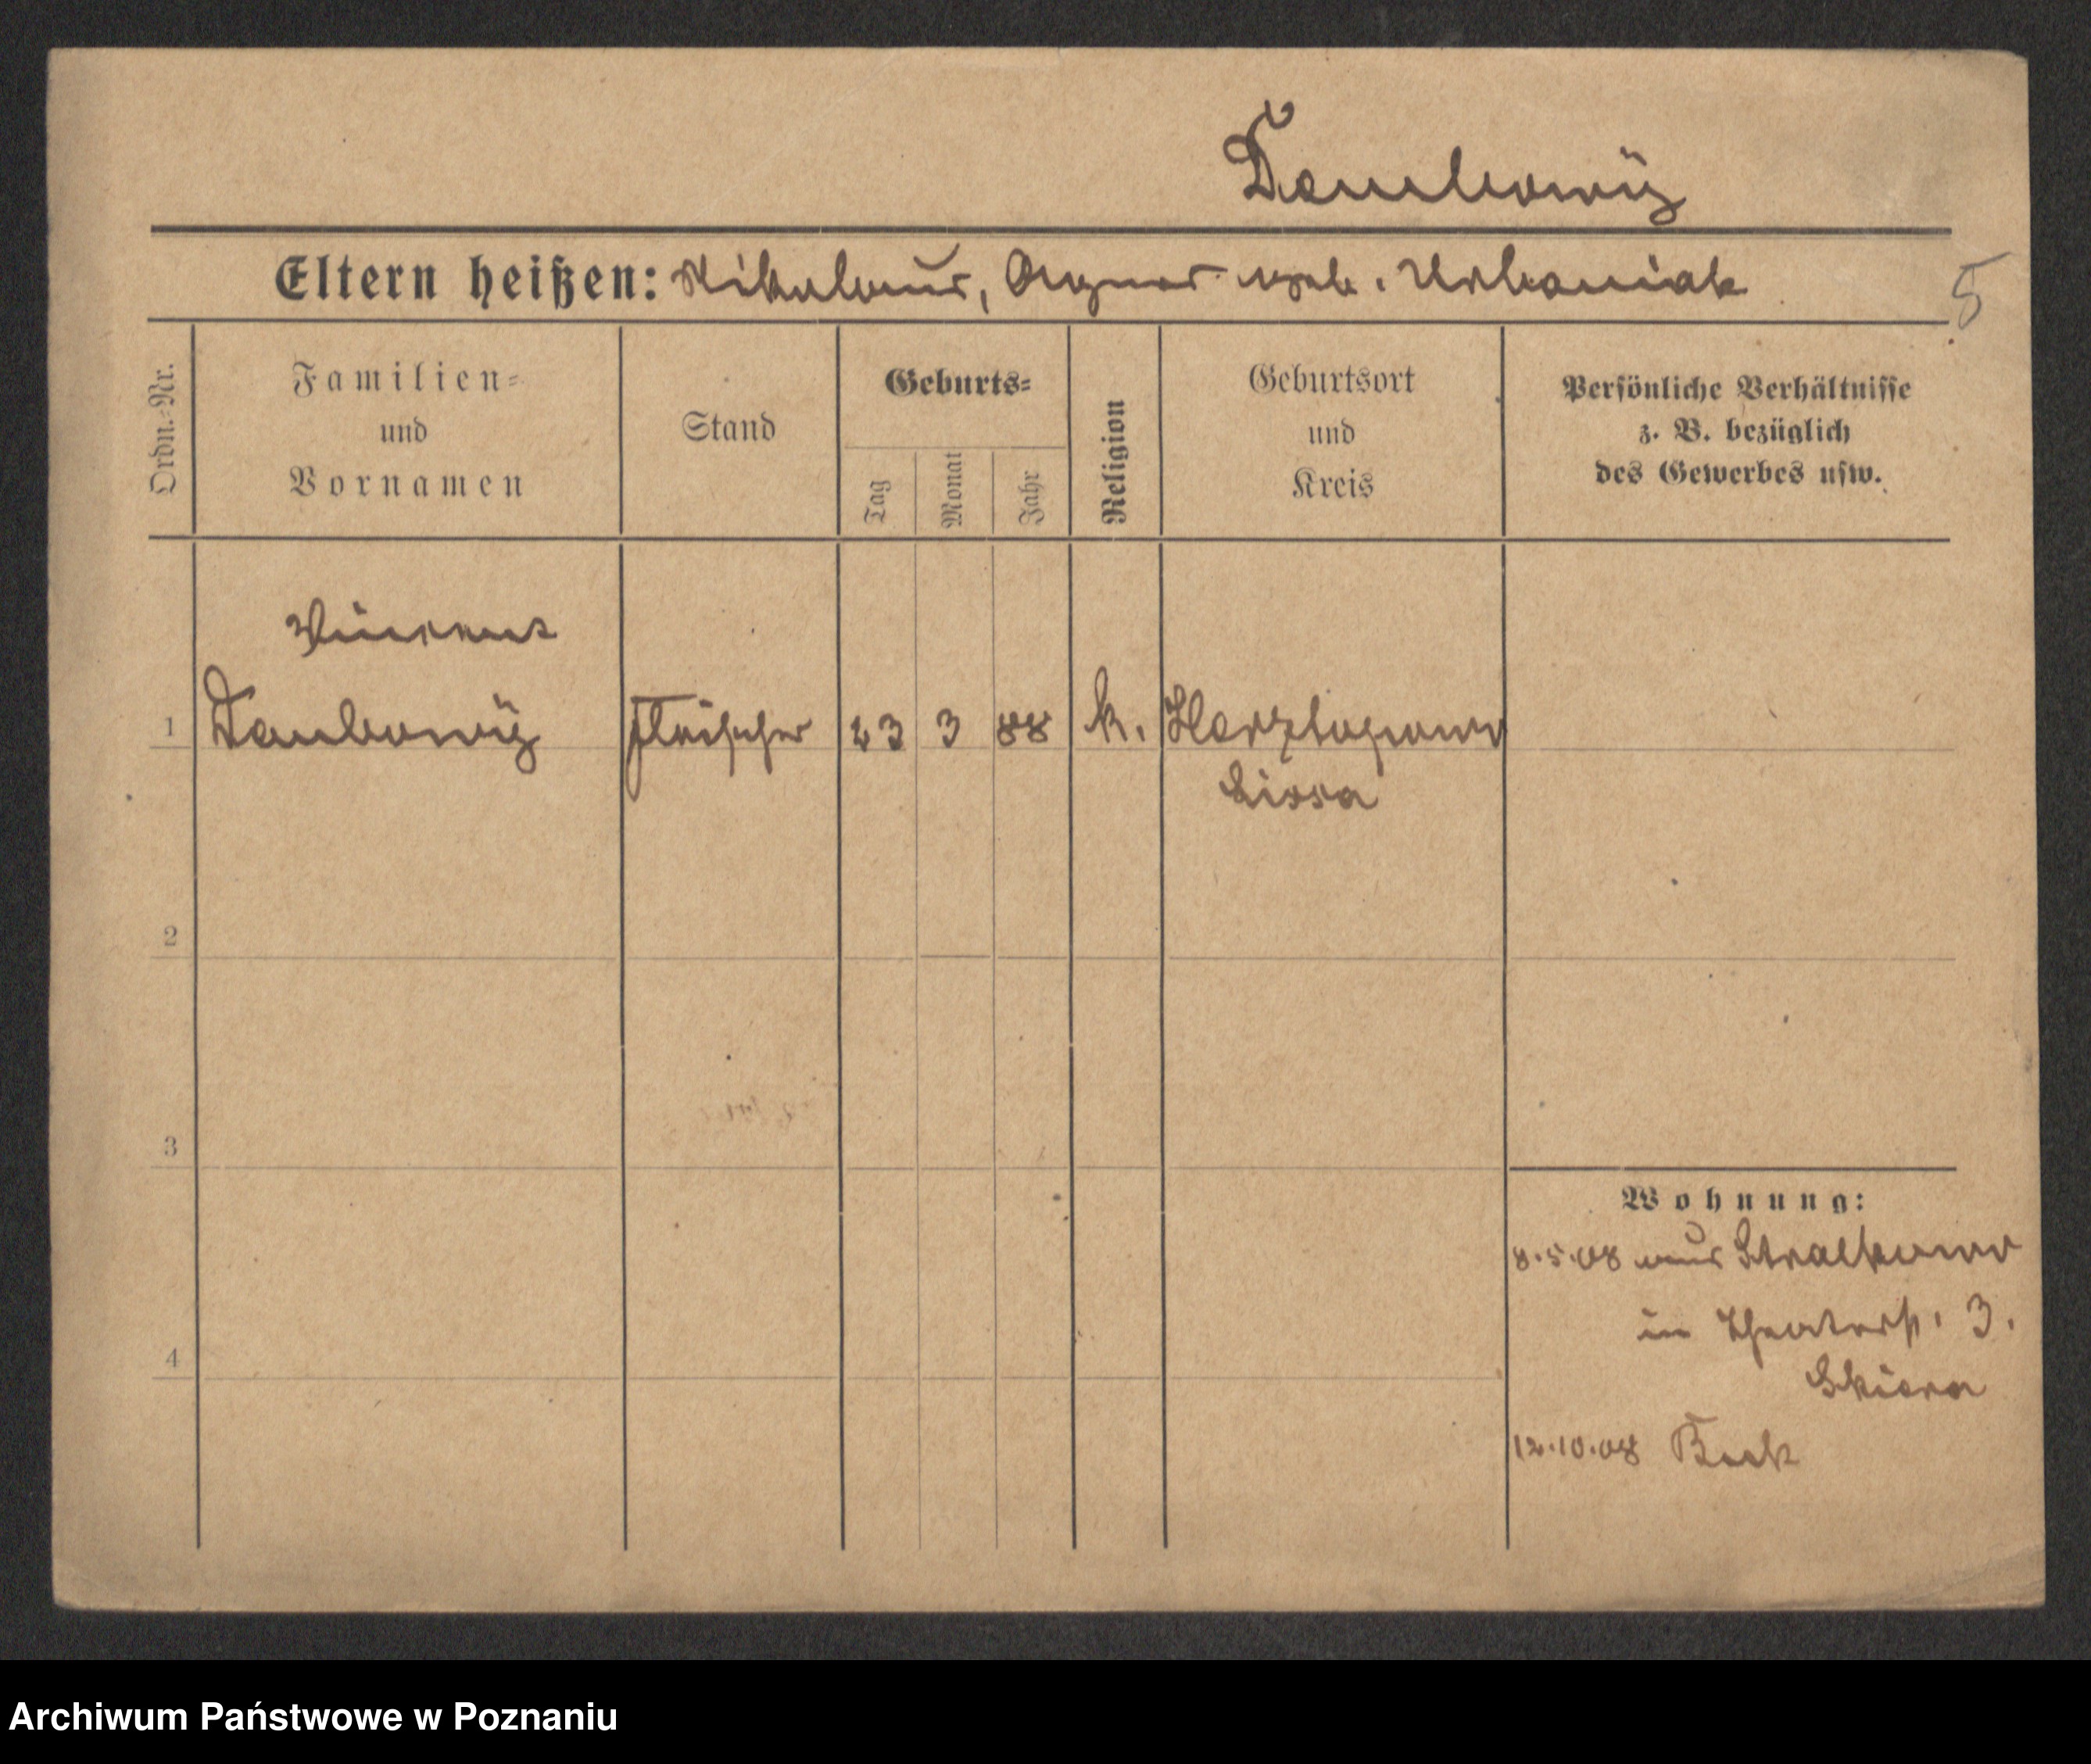 Dambowÿ
5
Eltern heißen: Nikolaus, Agnes geb. Urbaniak
Ordn.-Nr.
Familien-
und
Vornamen
Stand
Geburts-
Tag
Monat
Jahr
Religion
Geburtsort
und
Kreis
Persönliche Verhältnisse
z. B. bezüglich
des Gewerbes usw.
Vincent
1 Dambowÿ Fleischer 23 3 88 k.
Lissa
2
3
4
Wohnung:
8.5.08 aus Stralkowo
in Theaterstr. 3.
Skiera
12.10.08 Buk
Archiwum Państwowe w Poznaniu